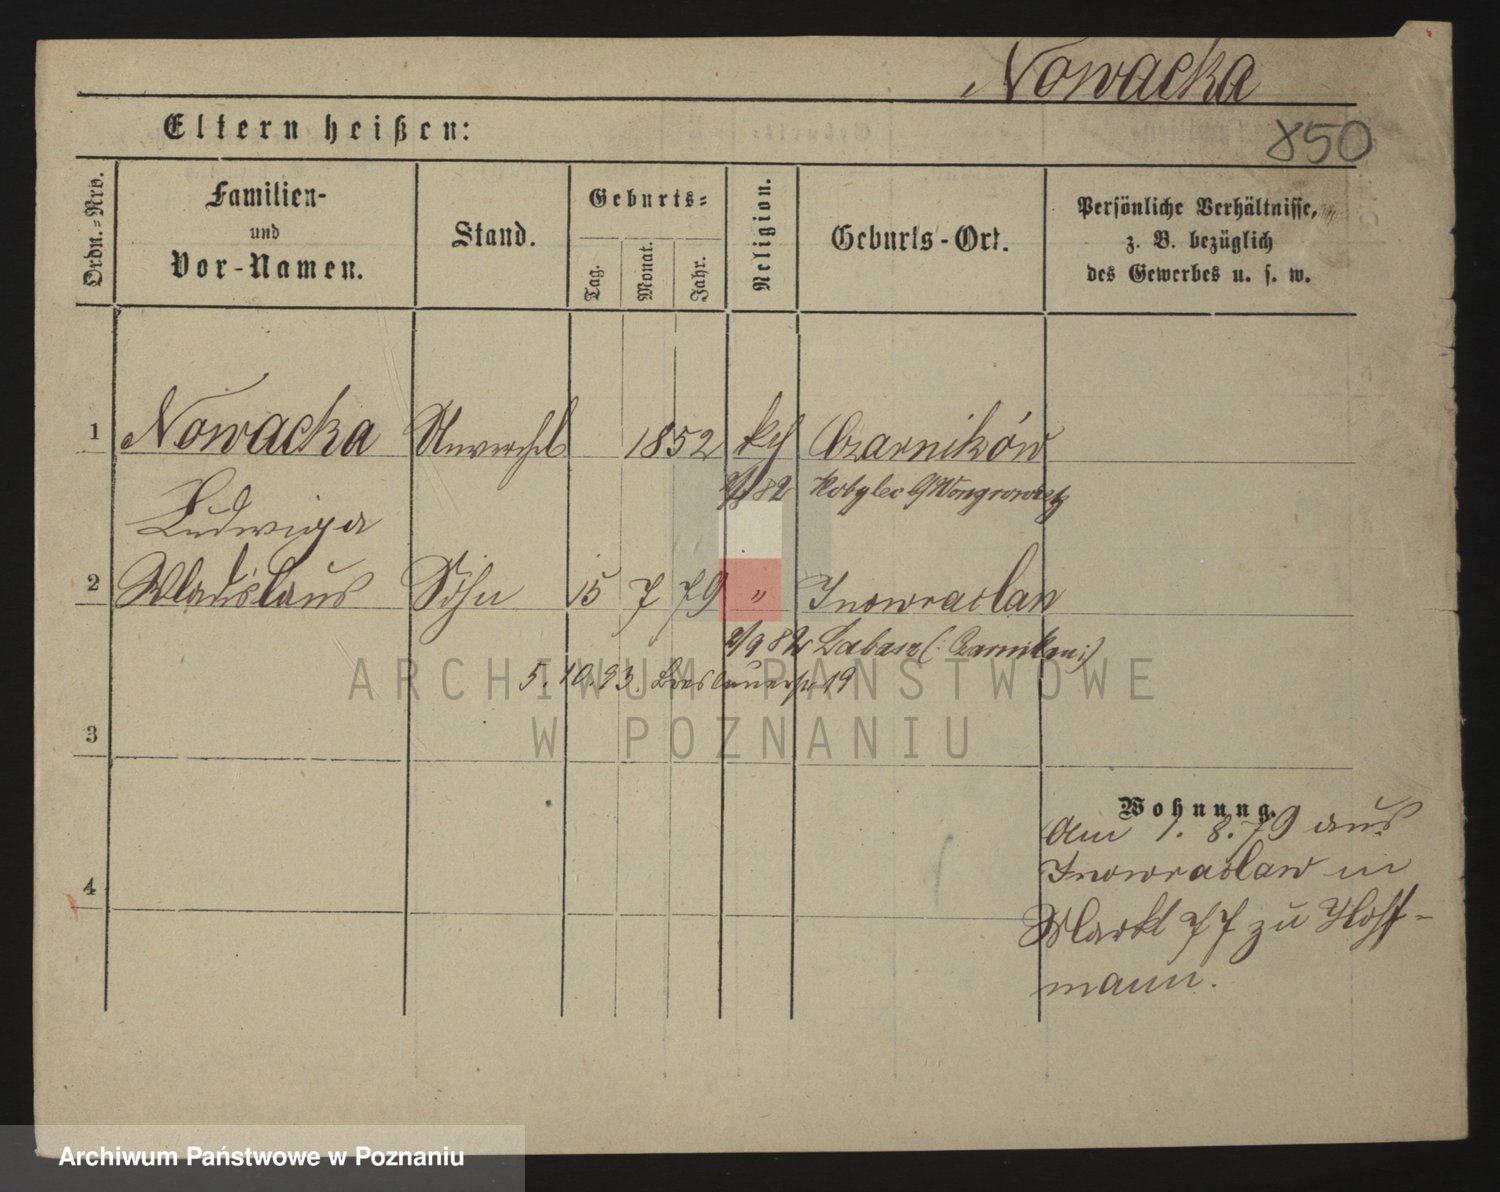 Nowacka
850
Eltern heißen:
Ordn.-Nro.
Familien-
und
Vor-Namen.
Stand.
Geburts-
Tag.
Monat.
Jahr.
Religion.
Geburts-Ort.
Persönliche Verhältnisse,
z. B. bezüglich
des Gewerbes u. s. w.
1 Nowacka Unverehel 1852 kth Czarników
82 Kobylec b/Wongrowetz
Ludwiga
2 Wladislaus Sohn 15 7 79 " Inowraclaw
2/9 82 (: Czarnikau :)
5. 10. 93. Breslauerstr 19
3
Wohnung.
Am 1. 8. 79 aus
Inowraclaw in
4
Markt 77 zu Hoff-
mann.
ARCHIWUM PAŃSTWOWE
W POZNANIU
Archiwum Państwowe w Poznaniu